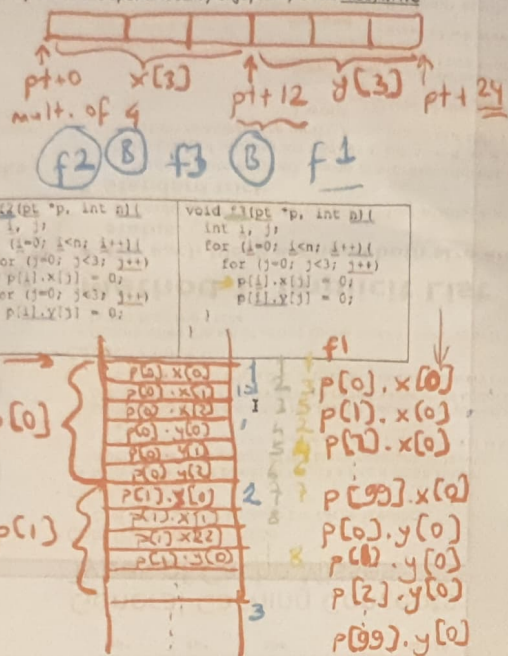 pt+0 x[3] pt+12 y[3] pt+24
mult. of 4
f2 B f3 B f1
f2(pt *p, int n){
i, j;
(i=0; i<n; i++){
or (j=0; j<3; j++)
p[i].x[j] = 0;
or (j=0; j<3; j++)
p[i].y[j] = 0;
void f3(pt *p, int n){
int i, j;
for (i=0; i<n; i++){
for (j=0; j<3; j++){
p[i].x[j] = 0;
p[i].y[j] = 0;
}
}
[0]
p[0].x[0]
p[0].x[1]
p[0].x[2]
p[0].y[0]
p[0].y[1]
p[0].y[2]
p(1)
p[1].x[0]
p[1].x[1]
p[1].x[2]
p[1].y[0]
1
2
3
1
2
3
4
5
6
7
8
1
3
5
2
4
6
7
8
f1
p[0].x[0]
p[1].x[0]
p[2].x[0]
p[99].x[0]
p[0].y[0]
p[1].y[0]
p[2].y[0]
p[99].y[0]